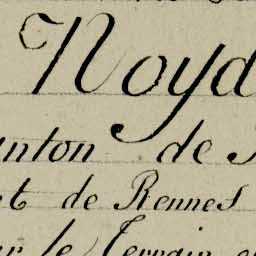 Noyd
anton de
et de Rennes
le Terrain